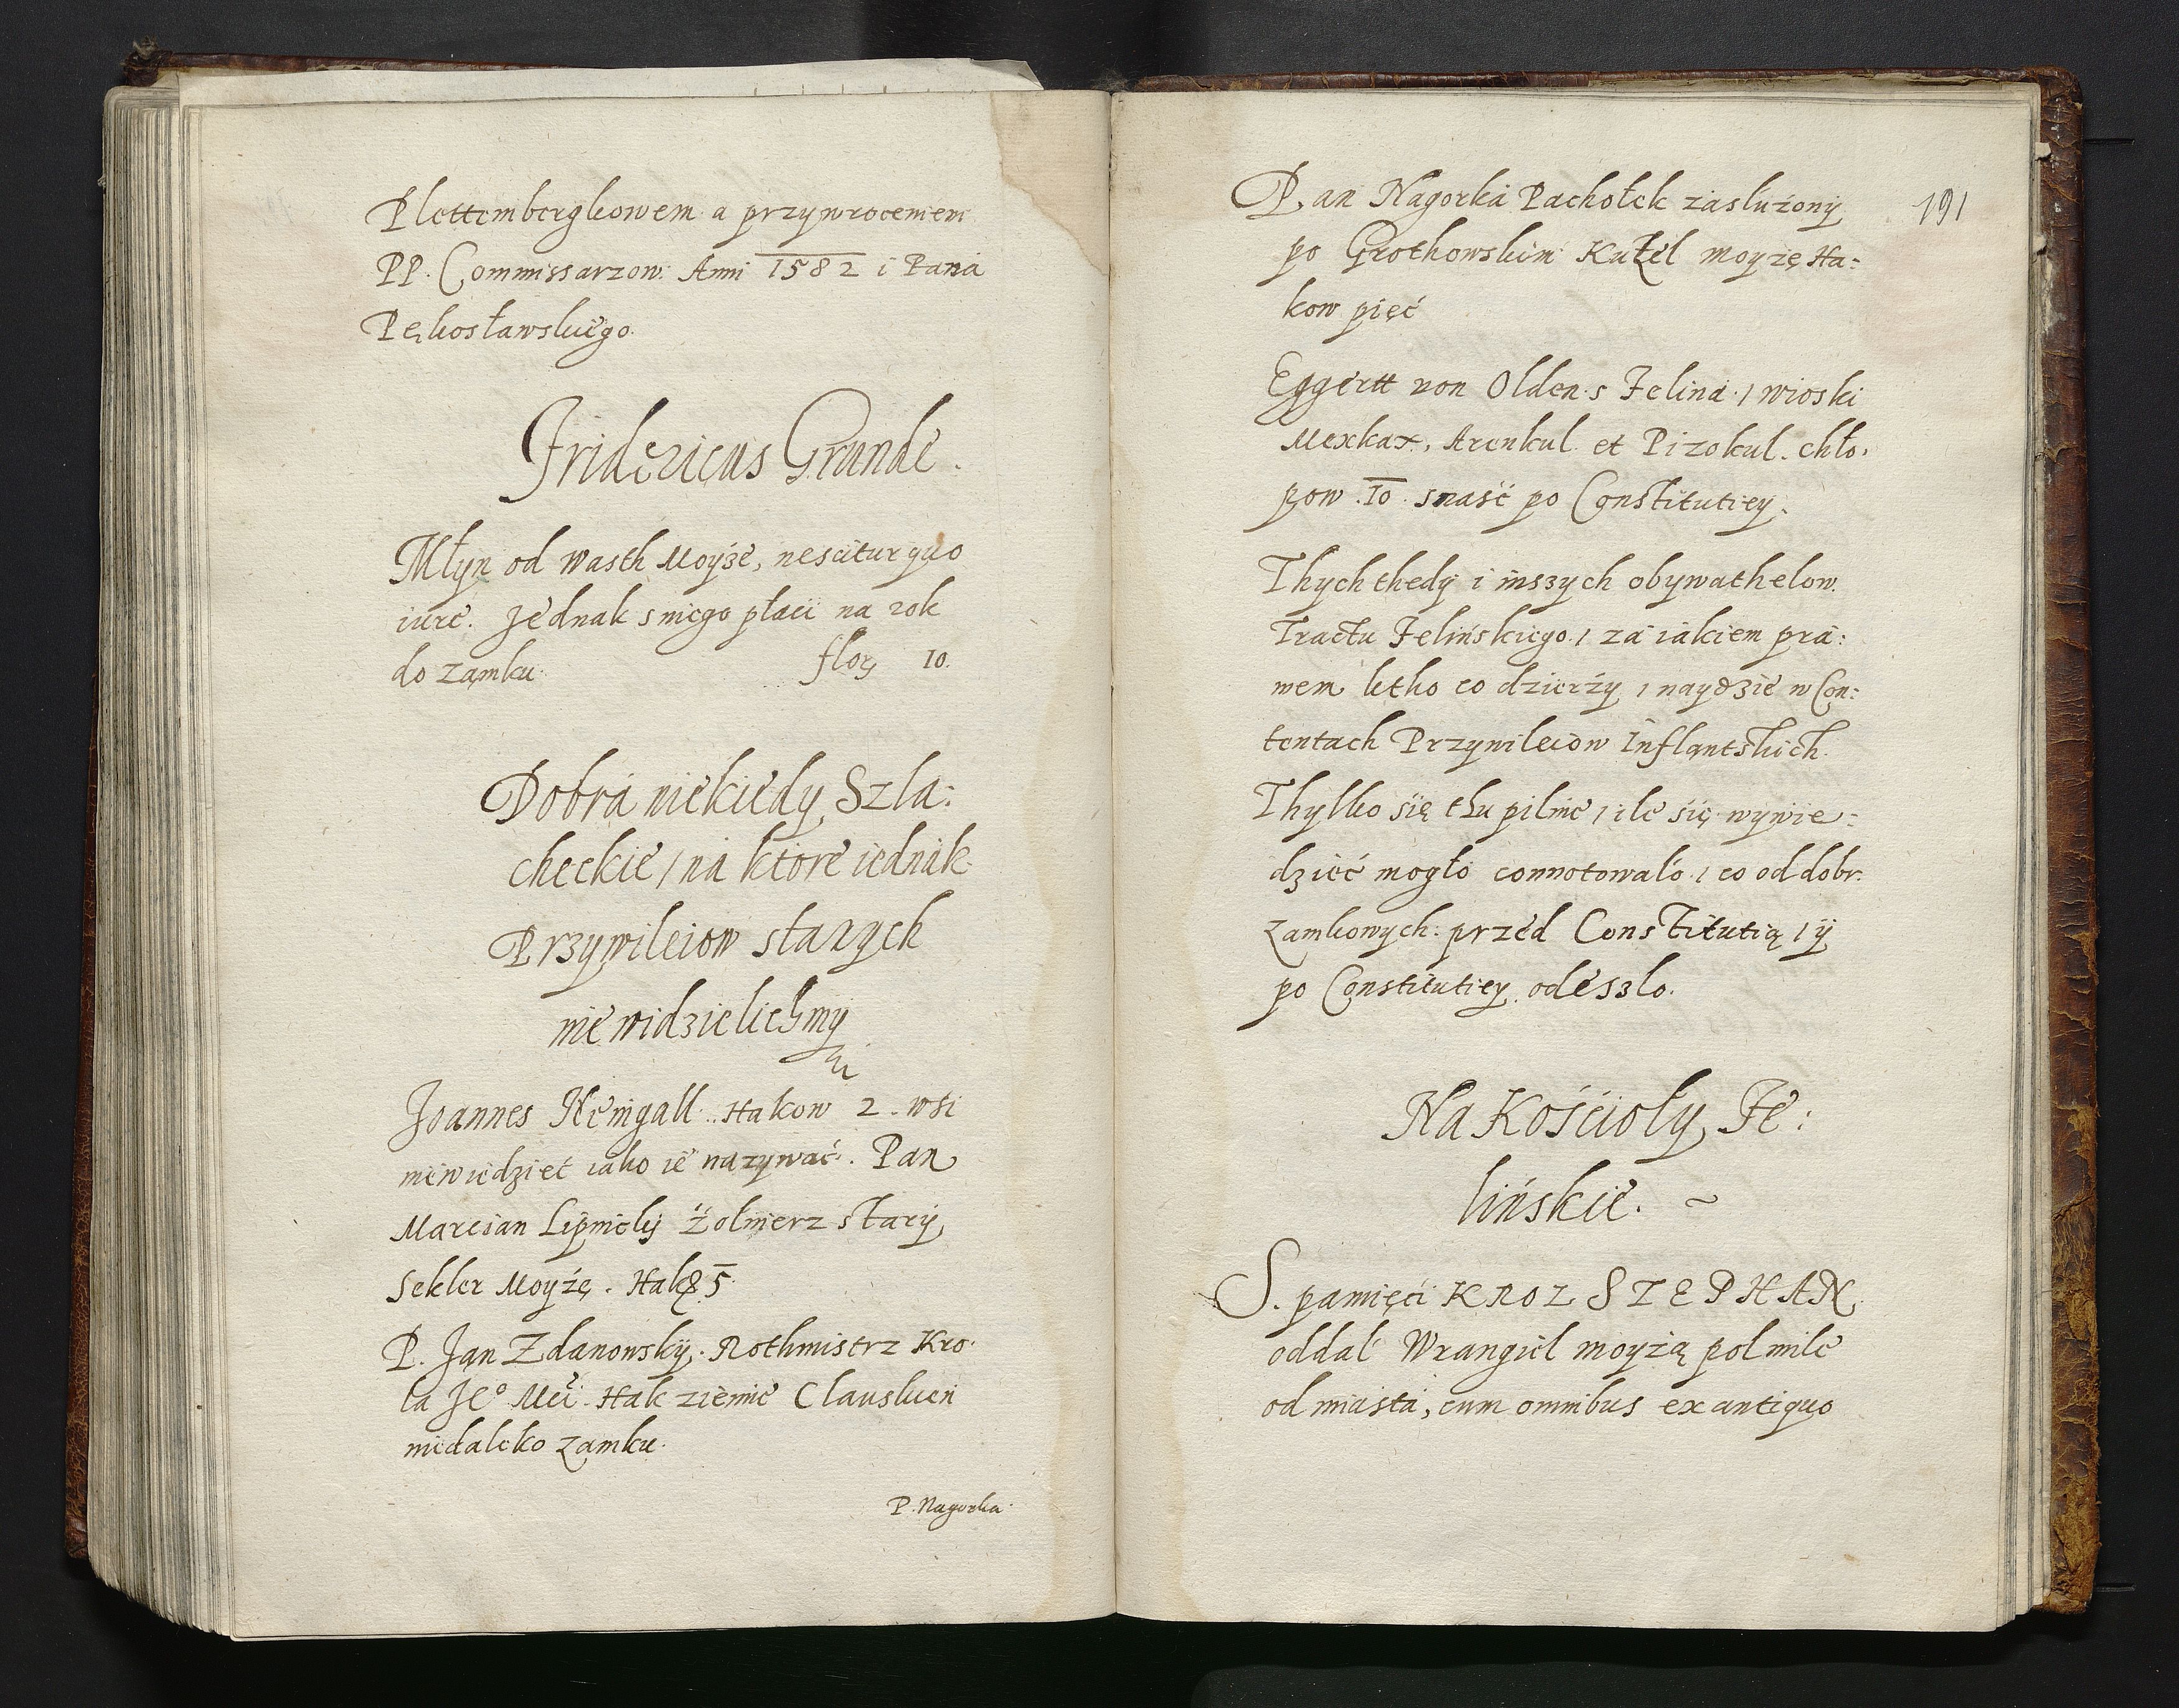 Plettembergkowem a przywroceniem
PP. Commissarzow Anni 1582 i Pana
Pękosławskiego.
Fridericus Grunde.
Młyn od Wasth Moyze, nescitur quo
iure. Jednak s niego płaci na rok
do zamku florz 10.
Dobrá niekiedy Szla:
checkie / ná ktore iednák
Przywileiow starych
nie widzielichmy
Joannes Nemgall. Hakow 2. wsi
niewiedzieć iako ie nazywać. Pan
Marcian Lipnicky Żolnierz stary
Sekler Moyżę. Hak 5.
P. Jan Zdanowsky. Rothmistrz Kro
la Je° Mci. Hak ziemie Clauskien
niedaleko zamku.
P. Nagorka.
191
Pan Nagorká Pachołek zásłużony
po Grothowskim Kużel moyzę Ha:
kow pięć
Eggertt von Olden s Felina / wioski
Mexkax, Arenkul et Pizokul. chło.
pow .10. snaść po Constitutiey.
Thych thedy i inszych obywathelow
Tractu Felińskiego / zá iákiem prá:
wem ktho co dzierży / naydzie w Con:
tentach Przywileiow Inflantskich.
Thylko się thu pilnie / ile się wywie:
dzieć mogło connotowało / co od dobr
zamkowych przed Constitutią / y
po Constitutiey odeszlo.
Na Kościoły Fe:
lińskie. ~
S. pamięci KROL STEPHAN
oddał Wrangiel moyzą pol mile
od miástá, cum omnibus ex antiquo